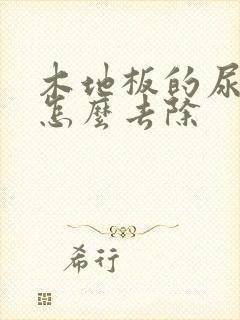 木地板的尿
怎麼去除
希行